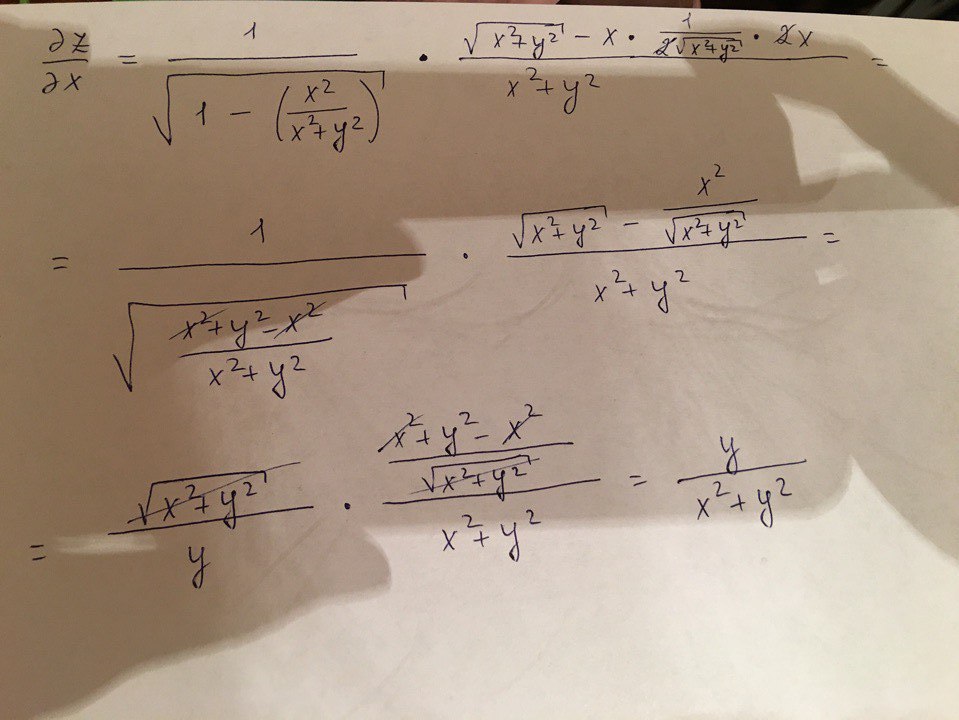 ∂z/∂x = 1/√(1 − (x²/(x²+y²))) · (√(x²+y²) − x · 1/(2√(x²+y²)) · 2x)/(x²+y²) =
= 1/√((x²+y²−x²)/(x²+y²)) · (√(x²+y²) − x²/√(x²+y²))/(x²+y²) =
= √(x²+y²)/y · ((x²+y²−x²)/√(x²+y²))/(x²+y²) = y/(x²+y²)